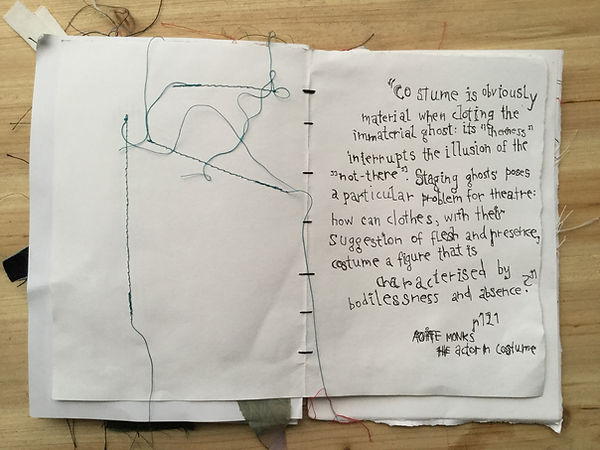 "Costume is obviously
material when cloting the
immaterial ghost: its "thereness"
interrupts the illusion of the
"not-there". Staging ghosts poses
a particular problem for theatre:
how can clothes, with their
suggestion of flesh and presence,
costume a figure that is
characterised by
bodilessness and absence?"
p121
AOIFE MONKS
THE actor in costume